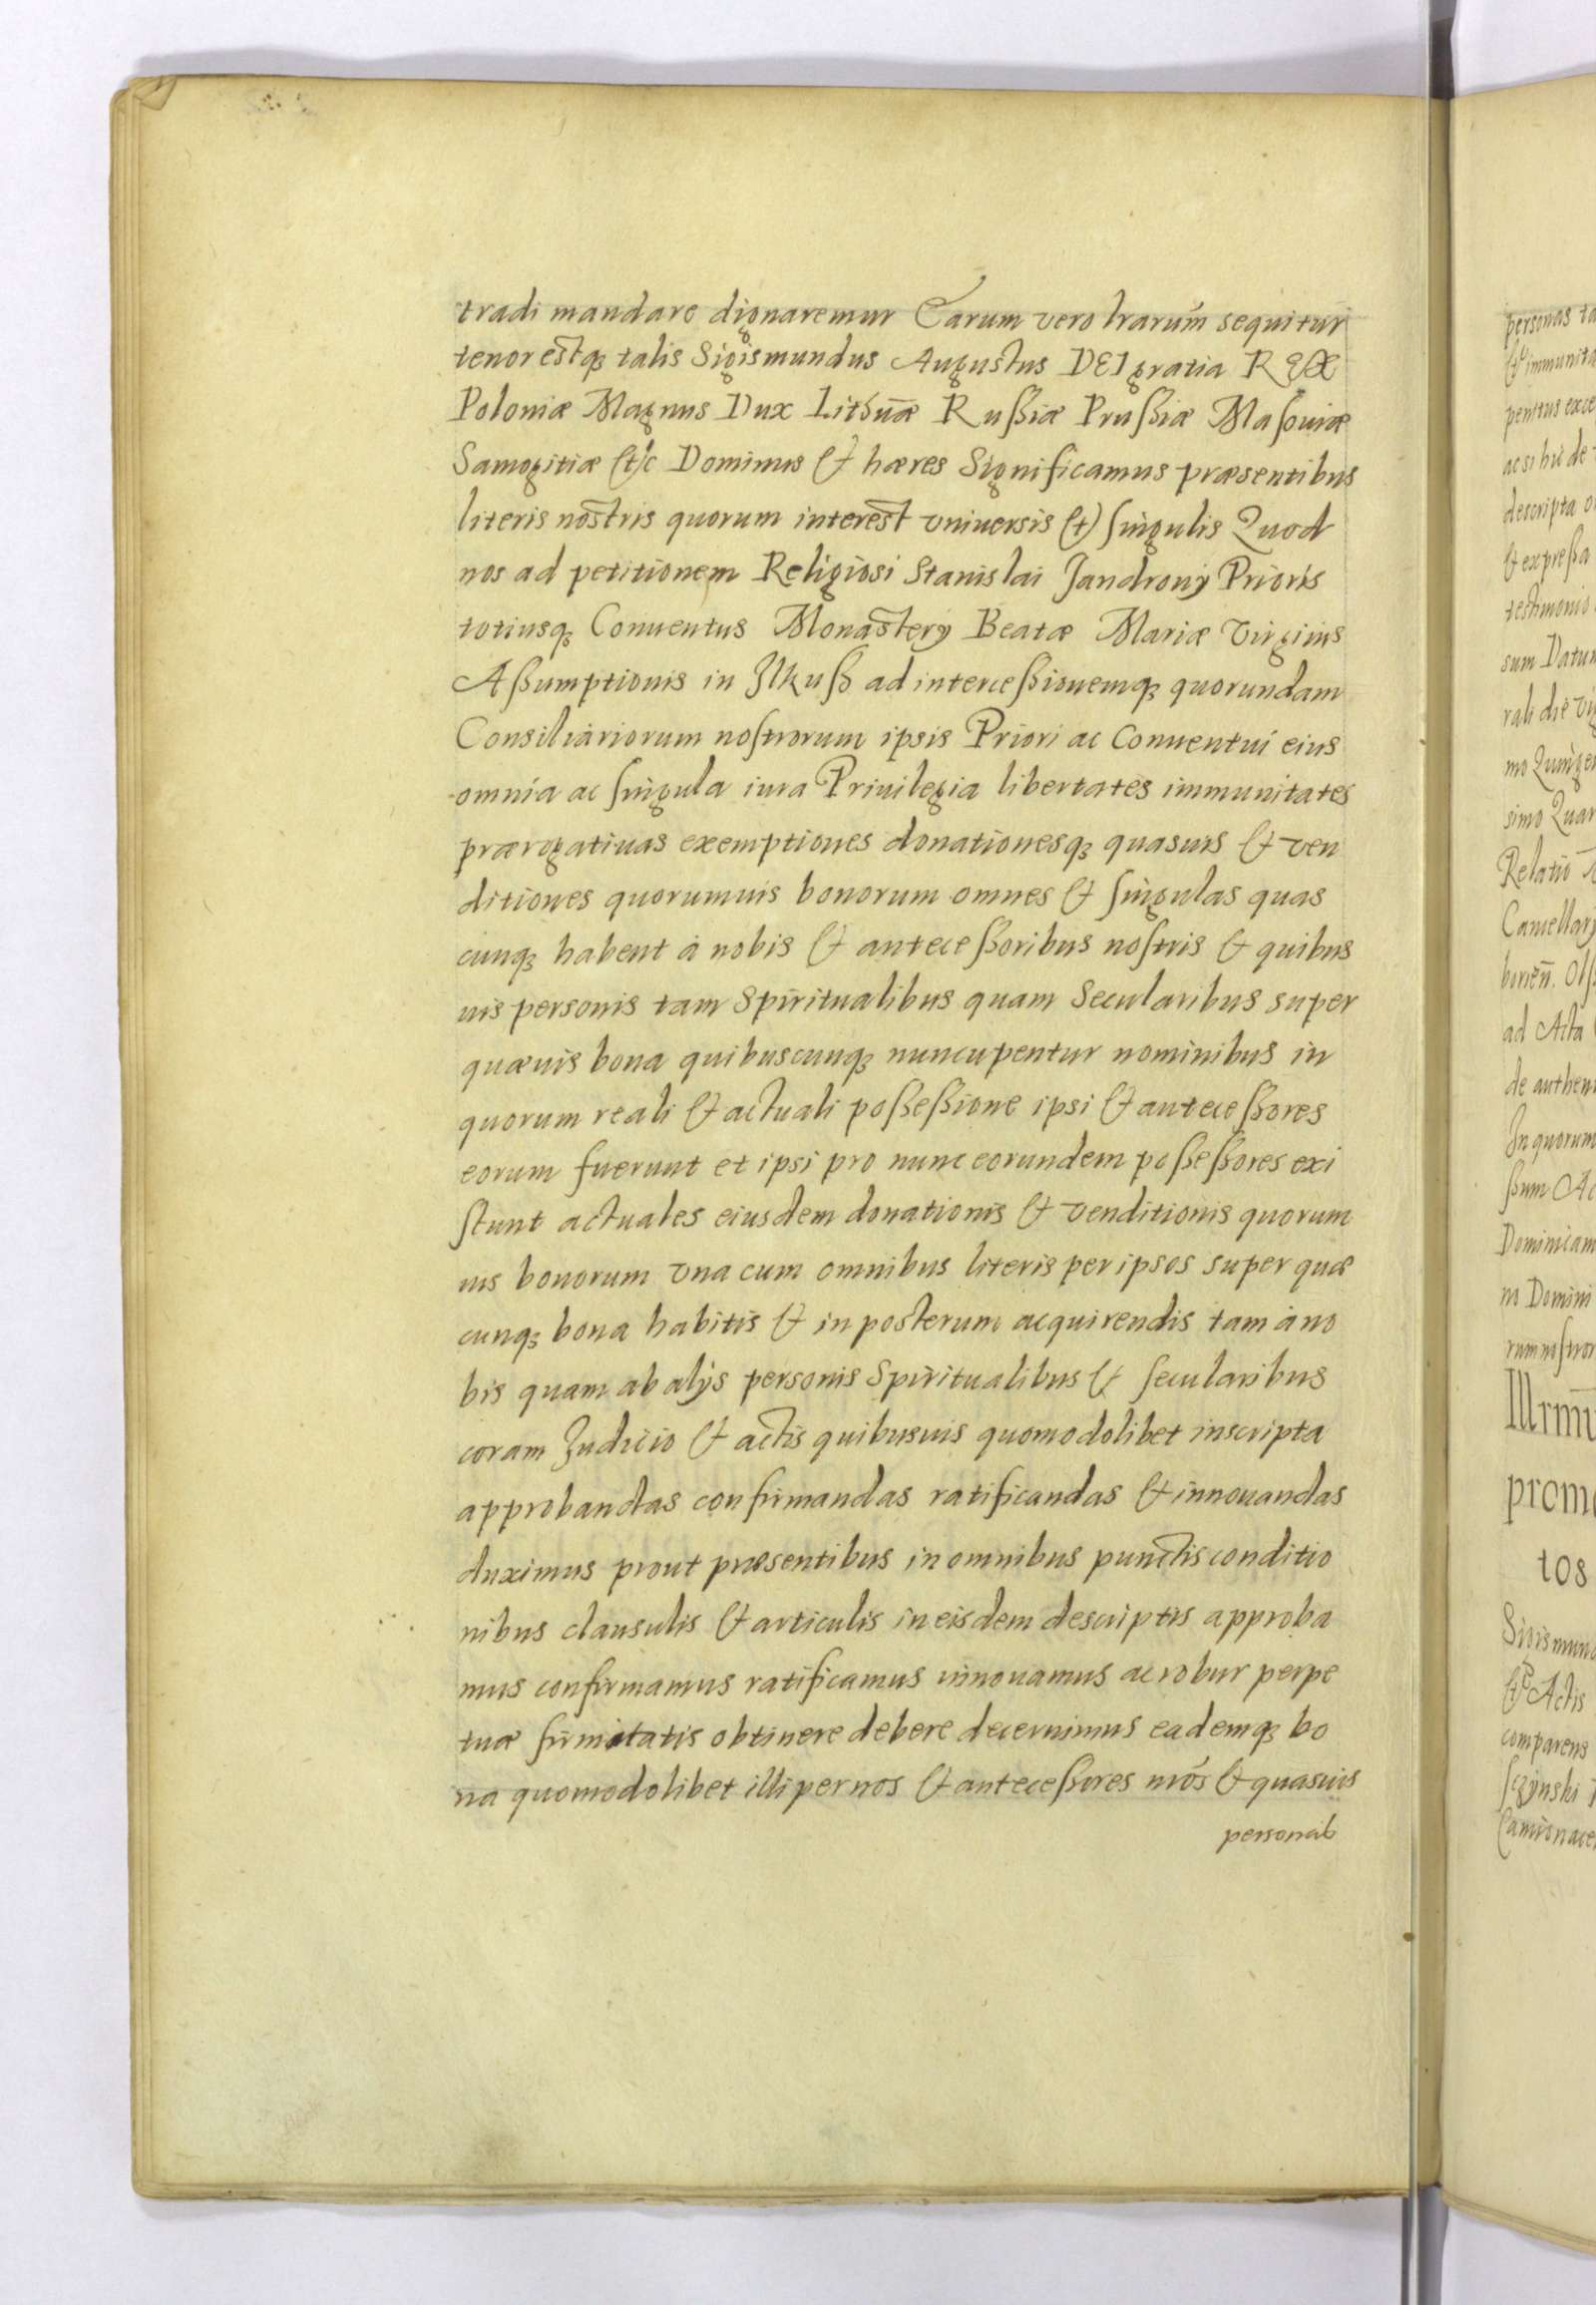 tradi mandare dignaremur Earum vero lrarum sequitur
tenor estq; talis Sigismundus Augustus DEI gratia REX
Poloniæ Magnus Dux Lithuæ Rußiæ Prußiæ Masouiæ
Samogitiæ etc Dominus & hæres Significamus præsentibus
literis nostris quorum interest vniuersis & singulis Quod
nos ad petitionem Religiosi Stanislai Jandrony Prioris
totiusq; Conuentus Monastery Beatæ Mariæ Virginis
Aßumptionis in Ilkuß ad interceßionemq; quorundam
Consiliariorum nostrorum ipsis Priori ac Conuentui eius
omnia ac singula iura Priuilegia libertates immunitates
prærogatiuas exemptiones donationesq; quasuis & ven
ditiones quorumuis bonorum omnes & singulas quas
cunq; habent à nobis & anteceßoribus nostris & quibus
uis personis tam Spiritualibus quam Secularibus super
quæuis bona quibuscunq; nuncupentur nominibus in
quorum reali & actuali poßeßione ipsi & anteceßores
eorum fuerunt et ipsi pro nunc eorundem poßeßores exi
stunt actuales eiusdem donationis & venditionis quorum
uis bonorum vna cum omnibus literis per ipsos super quæ
cunq; bona habitis & in posterum acquirendis tam à no
bis quam ab alijs personis Spiritualibus & secularibus
coram Iudicio & actis quibusuis quomodolibet inscripta
approbandas confirmandas ratificandas & innouandas
duximus prout præsentibus in omnibus punctis conditio
nibus clausulis & articulis in eisdem descriptis approba
mus confirmamus ratificamus innouamus ac robur perpe
tuæ firmitatis obtinere debere decernimus eademq; bo
na quomodolibet illi per nos & anteceßores nros & quasuis
personas

personas ta
immunita
penitus exce
ac si hic de
descripta
& expreßa
testimonio
sum Datum
rali die
mo Quinge
simo Quar
Relatio
Cancellarj
ad Acta
de authen
In quorum
ßum
Dominicam
no Domini
rum nostror
Illrmu
prom
tos
Sigismund
Actis
comparens